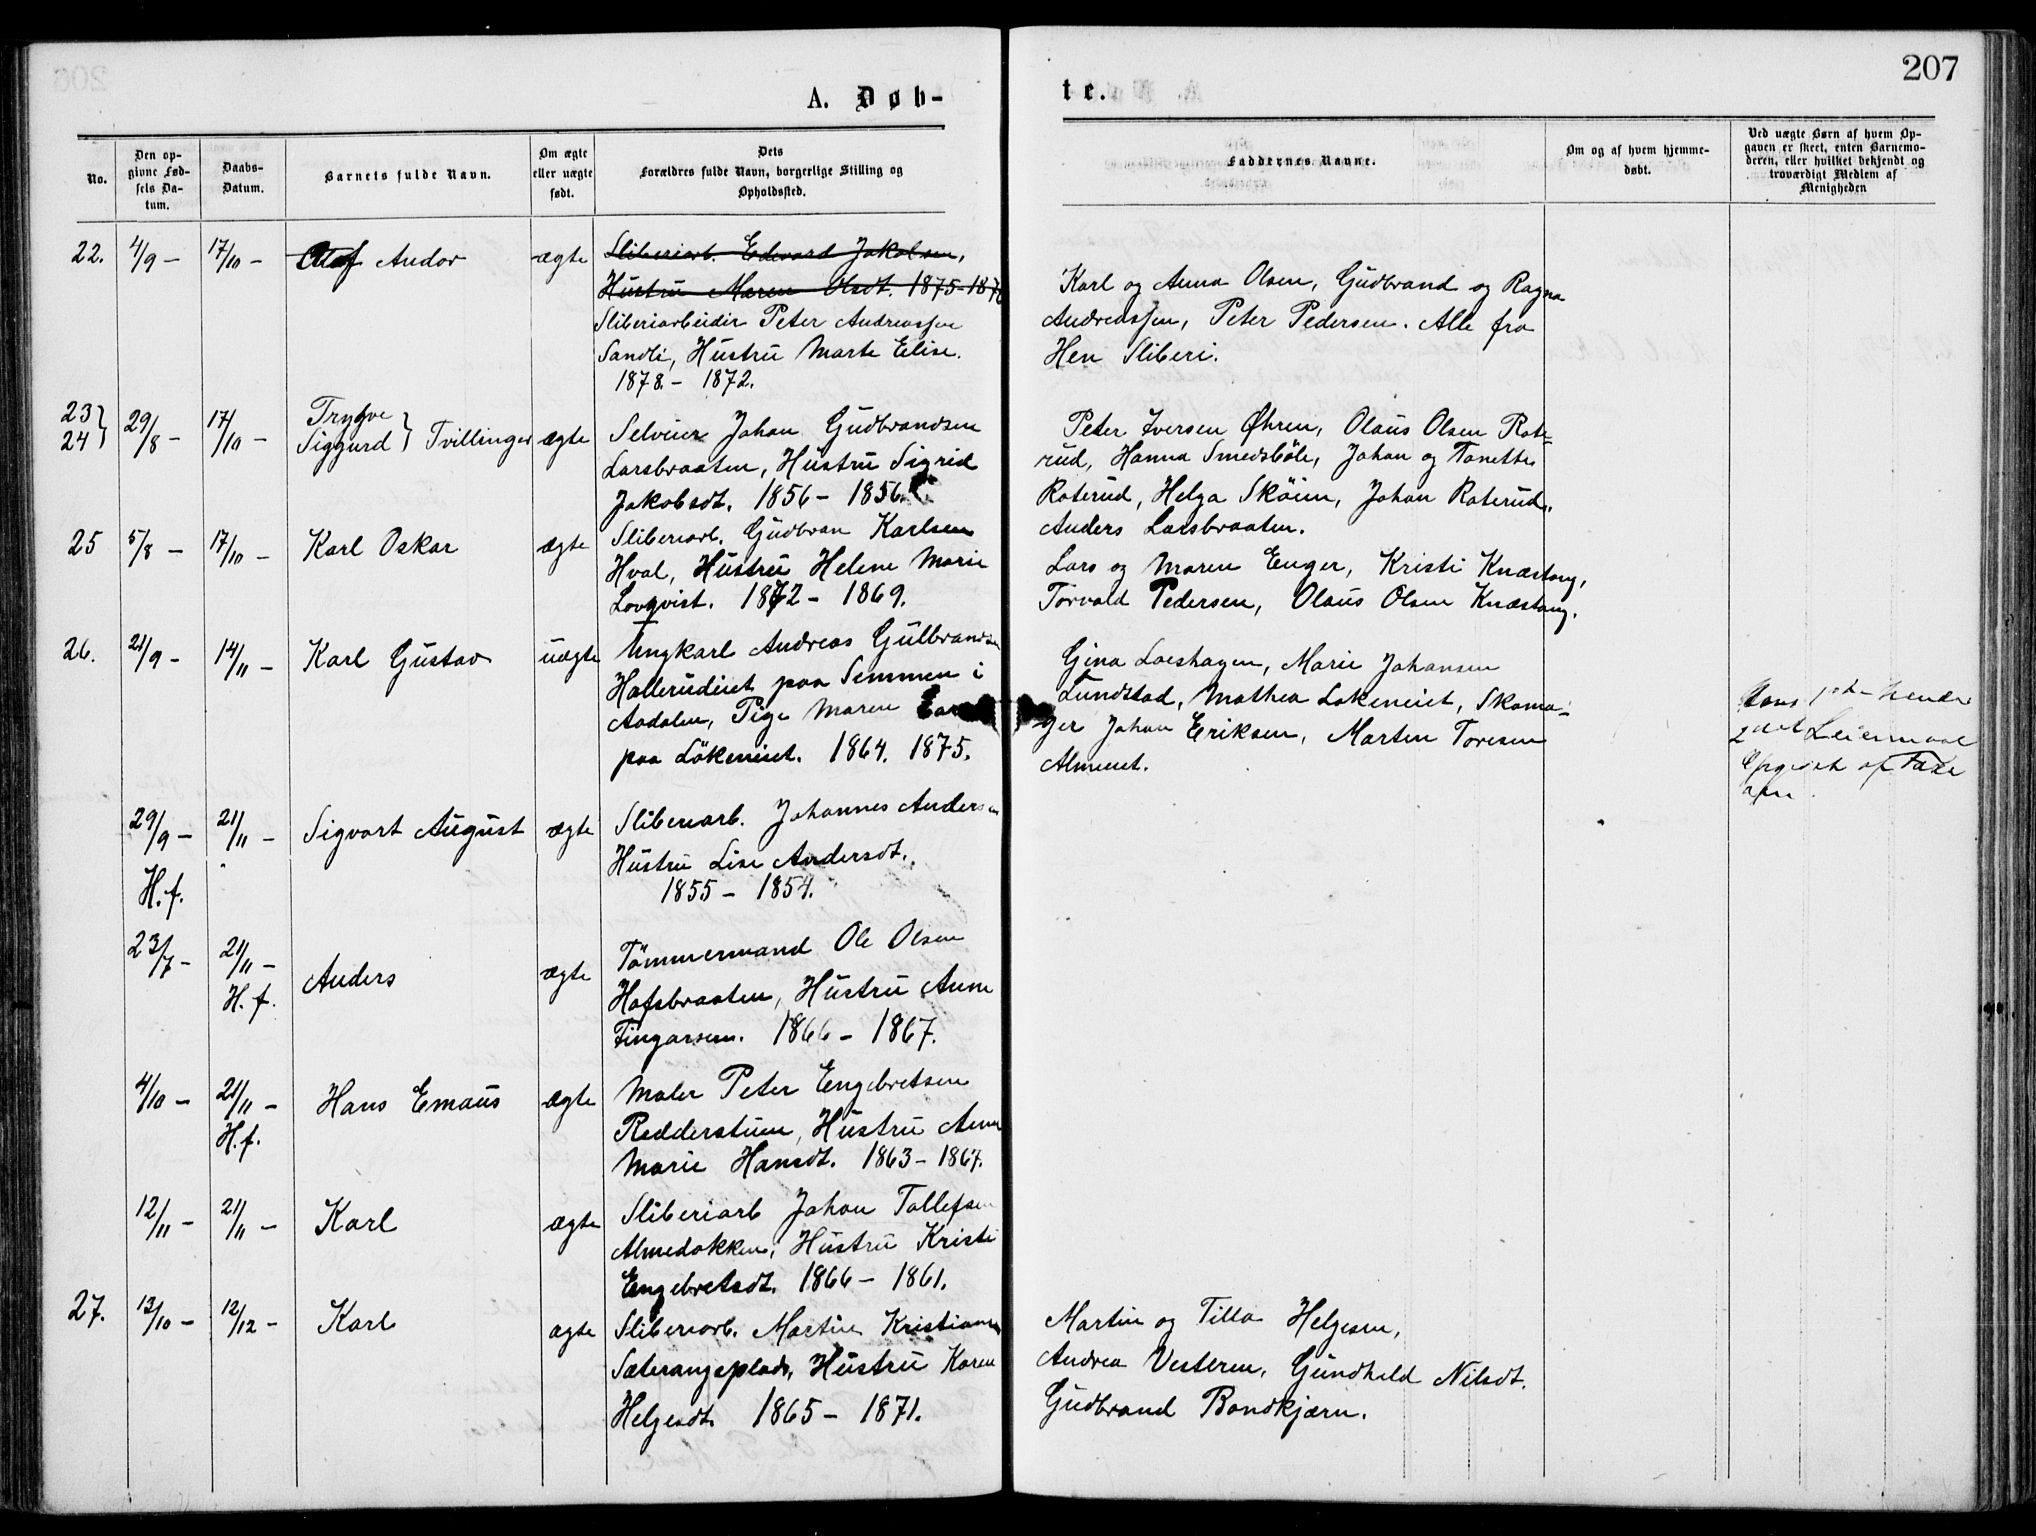 207
A. Døb-
te.
No.
Den op-
givne Fød-
sels Da-
tum.
Daabs-
Datum.
Barnets fulde Navn.
Om ægte
eller uægte
født.
Dets
Forældres fulde Navn, borgerlige Stilling og
Opholdssted.
Faddernes Navne.
Om og af hvem hjemme-
døbt.
Ved uægte Børn af hvem Op-
gaven er skeet, enten Barnemo-
deren, eller hvilket bekjendt og
troværdigt Medlem af
Menigheden
22. 4/9 - 17/10 - Olaf Andor ægte
Sliberiarb. Edvard Jakobsen,
Hustru Maren Olsdt. 1875-
Sliberiarbeider Peter Andreassen
Sandli, Hustru Marte Elise.
1878. - 1872.
Karl og Anna Olsen, Gudbrand og Ragna
Andreassen, Peter Pedersen. Alle fra
Hen Sliberi.
23 } 24 } 29/8 - 17/10 - Trygve
Siggurd } Tvillinger ægte
Selveier Johan Gudbrandsen
Larsbraaten, Hustru Sigrid
Jakobsdt. 1856 - 1856.
Peter Iversen Øhren, Olaus Olsen Rote-
rud, Hanna Smedsböle, Johan og Tonette
Roterud, Helga Sköien, Johan Roterud,
Anders Larsbraaten.
25 5/8 - 17/10 - Karl Oskar ægte
Sliberiarb. Gudbran Karlsen
Hval, Hustru Helene Marie
Lovqvist. 1872 - 1869.
Lars og Maren Enger, Kristi Knæstang,
Torvald Pedersen, Olaus Olsen Knæstang.
26. 21/9 - 14/11 - Karl Gustav uægte
Ungkarl Andreas Gulbrandsen
Hallerudeiet paa Semmen i
Aadalen, Pige Maren
paa Lökeneiet. 1864. 1875.
Gina Loeshagen, Marie Johansen
Lundstad, Mathea Lökeneiet, Skoma-
ger Johan Eriksen, Marten Toresen
Almeiet.
Hans 1ste - hendes
2det Leiermaal
Opgivet af Fade
ren.
29/9 - 21/11 - Sigvart August ægte
H. f.
Sliberiarb. Johannes Andersen
Hustru Lise Andersdt.
1855 - 1854.
23/7 - 21/11 - Anders ægte
H. f.
Tömmermand Ole Olsen
Hofsbraaten, Hustru Anne
Fingarsen. 1866 - 1867.
4/10 - 21/11 - Hans Emaus ægte
H. f.
Maler Peter Engebretsen
Redderstuen, Hustru Anne
Marie Hansdt. 1863 - 1867.
12/11 - 21/11 - Karl ægte
Sliberiarb Johan Tollefsen
Almedokken, Hustru Kristi
Engebretsdt. 1866 - 1861.
27. 13/10 - 12/12 - Karl ægte
Sliberiarb. Martin Kristiansen
Sæterangsplads, Hustru Karen
Helgesdt. 1865 - 1871.
Martin og Tilla Helgesen,
Andrea Vesteren, Gundhild Nilsdt.
Gudbrand Bondkjærn.